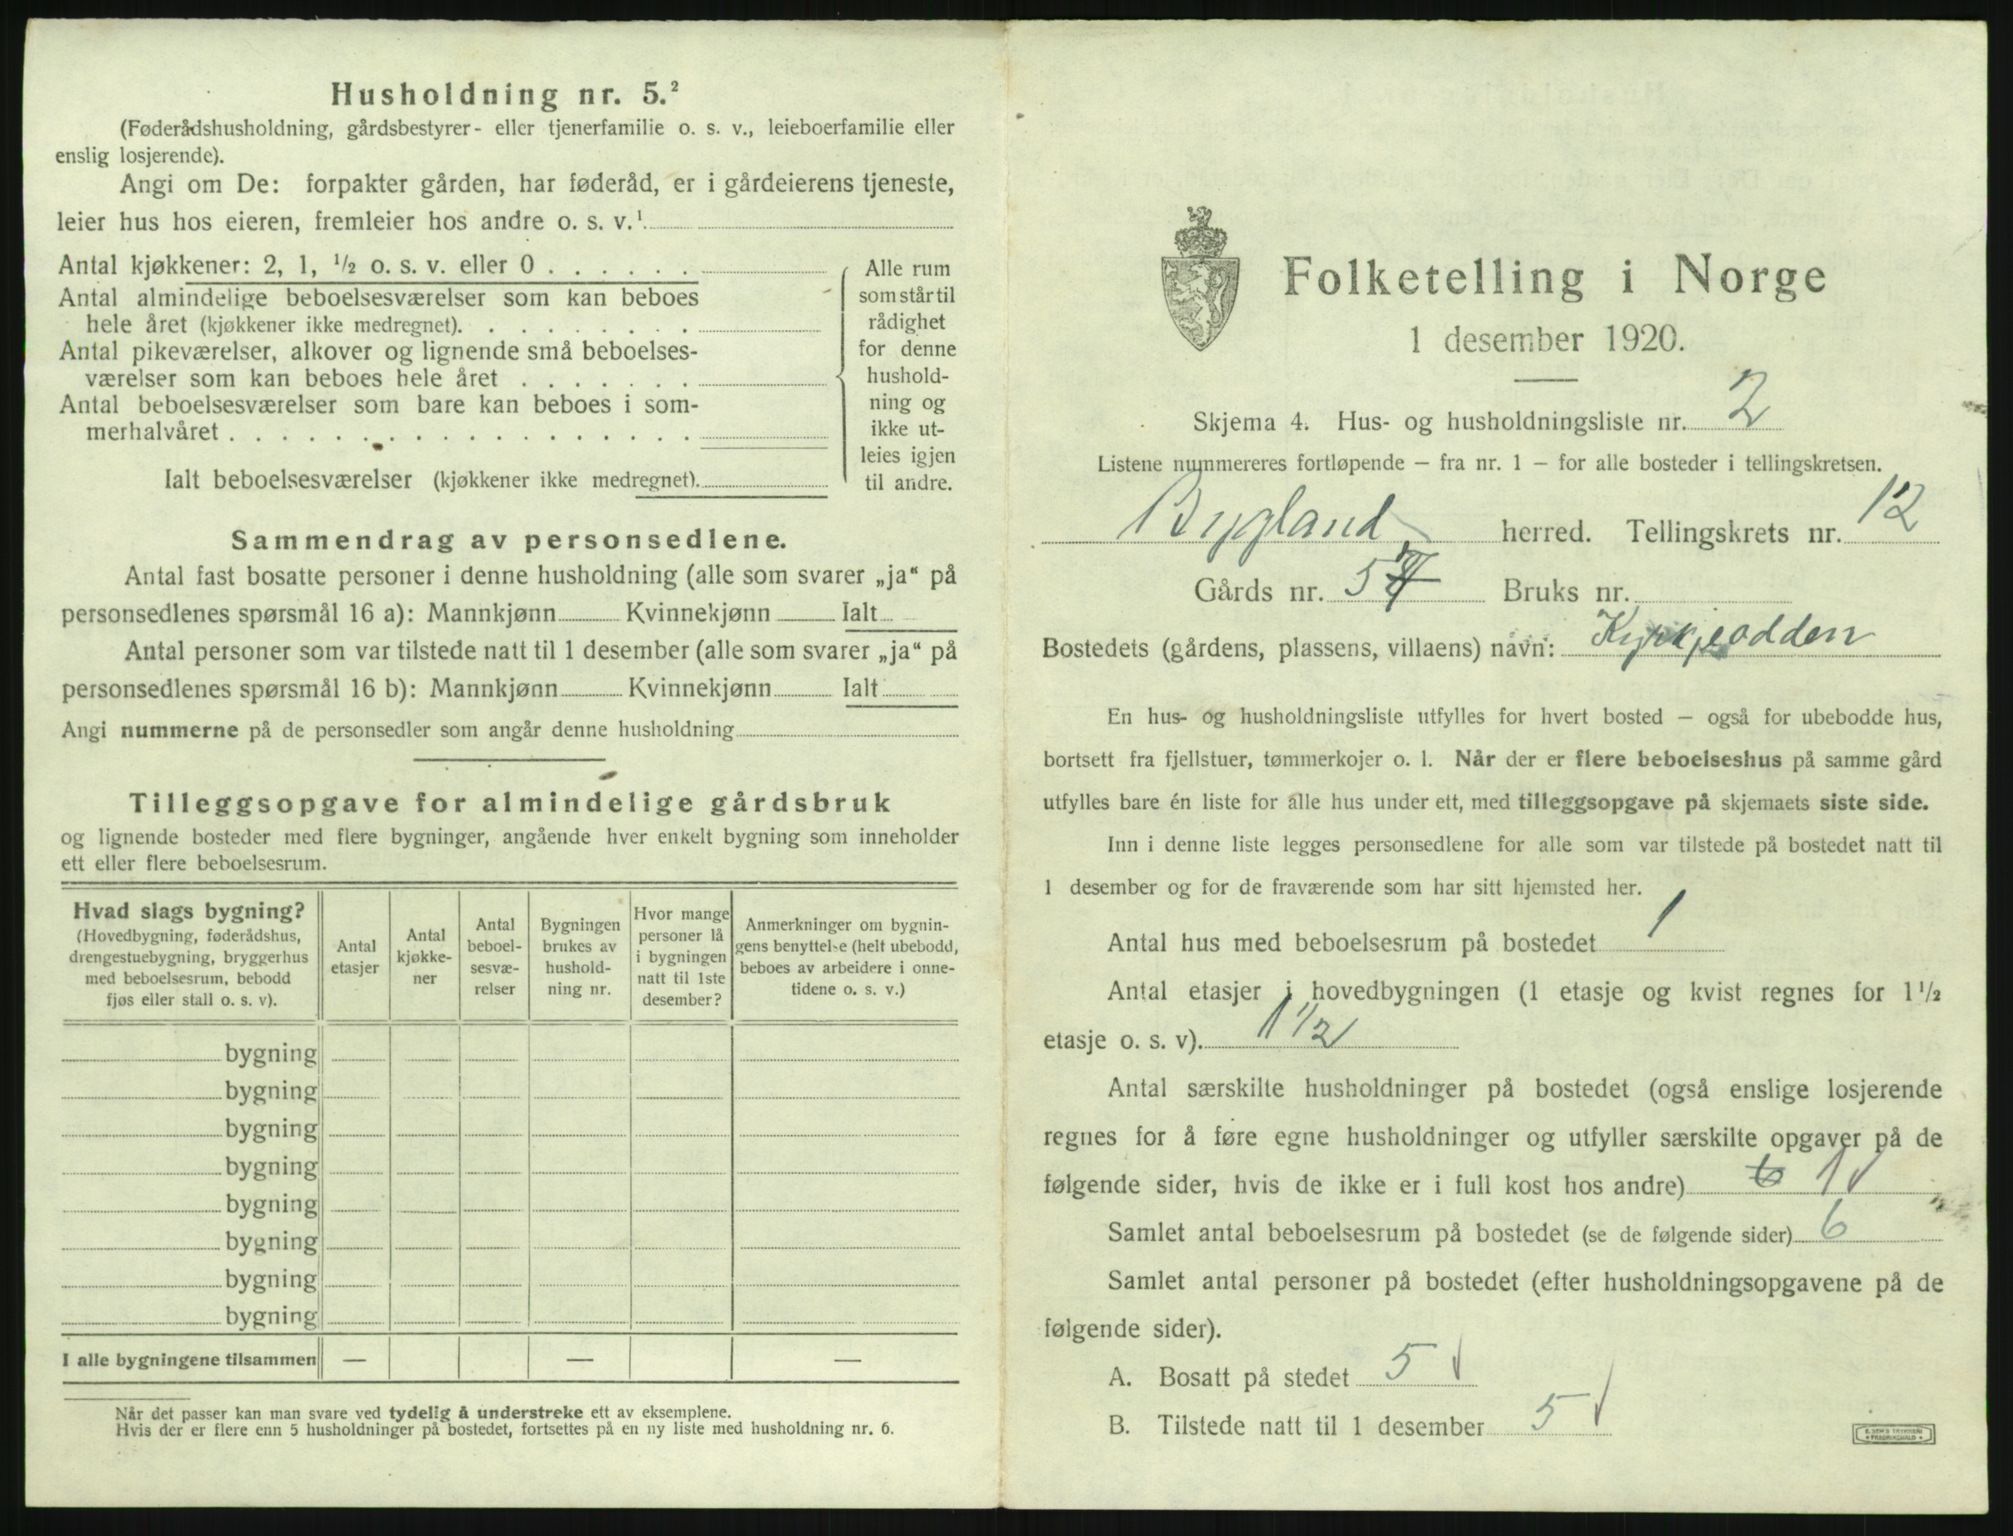 Husholdning nr. 5.²
(Føderådshusholdning, gårdsbestyrer- eller tjenerfamilie o. s. v., leieboerfamilie eller
enslig losjerende).
Angi om De: forpakter gården, har føderåd, er i gårdeierens tjeneste,
leier hus hos eieren, fremleier hos andre o. s. v.¹
Antal kjøkkener: 2, 1, ½ o. s. v. eller 0 . . . . . .
Antal almindelige beboelsesværelser som kan beboes
hele året (kjøkkener ikke medregnet). . . . . . . . .
Antal pikeværelser, alkover og lignende små beboelses-
værelser som kan beboes hele året . . . . . . .
Antal beboelsesværelser som bare kan beboes i som-
merhalvåret . . . . . . . . . . . . . . . . . .
Ialt beboelsesværelser (kjøkkener ikke medregnet).
Alle rum
som står til
rådighet
for denne
hushold-
ning og
ikke ut-
leies igjen
til andre.
Sammendrag av personsedlene.
Antal fast bosatte personer i denne husholdning (alle som svarer „ja“ på
personsedlenes spørsmål 16 a): Mannkjønn Kvinnekjønn Ialt
Antal personer som var tilstede natt til 1 desember (alle som svarer „ja“ på
personsedlenes spørsmål 16 b): Mannkjønn Kvinnekjønn Ialt
Angi nummerne på de personsedler som angår denne husholdning
Tilleggsopgave for almindelige gårdsbruk
og lignende bosteder med flere bygninger, angående hver enkelt bygning som inneholder
ett eller flere beboelsesrum.
Hvad slags bygning?
(Hovedbygning, føderådshus,
drengestuebygning, bryggerhus
med beboelsesrum, bebodd
fjøs eller stall o. s. v).
Antal
etasjer
Antal
kjøkke-
ner
Antal
beboel-
sesvæ-
relser
Bygningen
brukes av
hushold-
ning nr.
Hvor mange
personer lå
i bygningen
natt til 1ste
desember?
Anmerkninger om bygnin-
gens benyttelse (helt ubebodd,
beboes av arbeidere i onne-
tidene o. s. v.)
bygning
bygning
bygning
bygning
bygning
bygning
bygning
bygning
I alle bygningene tilsammen — — —
Når det passer kan man svare ved tydelig å understreke ett av eksemplene.
Hvis der er flere enn 5 husholdninger på bostedet, fortsettes på en ny liste med husholdning nr. 6.
Folketelling i Norge
1 desember 1920.
Skjema 4. Hus- og husholdningsliste nr. 2
Listene nummereres fortløpende – fra nr. 1 – for alle bosteder i tellingskretsen.
Bygland herred. Tellingskrets nr. 12
Gårds nr. 57 Bruks nr.
Bostedets (gårdens, plassens, villaens) navn: Kyrkjeodden
En hus- og husholdningsliste utfylles for hvert bosted – også for ubebodde hus,
bortsett fra fjellstuer, tømmerkojer o. l. Når der er flere beboelseshus på samme gård
utfylles bare én liste for alle hus under ett, med tilleggsopgave på skjemaets siste side.
Inn i denne liste legges personsedlene for alle som var tilstede på bostedet natt til
1 desember og for de fraværende som har sitt hjemsted her.
Antal hus med beboelsesrum på bostedet 1
Antal etasjer i hovedbygningen (1 etasje og kvist regnes for 1½
etasje o. s. v). 1½
Antal særskilte husholdninger på bostedet (også enslige losjerende
regnes for å føre egne husholdninger og utfyller særskilte opgaver på de
følgende sider, hvis de ikke er i full kost hos andre) 1
Samlet antal beboelsesrum på bostedet (se de følgende sider) 6
Samlet antal personer på bostedet (efter husholdningsopgavene på de
følgende sider).
A. Bosatt på stedet 5
B. Tilstede natt til 1 desember 5